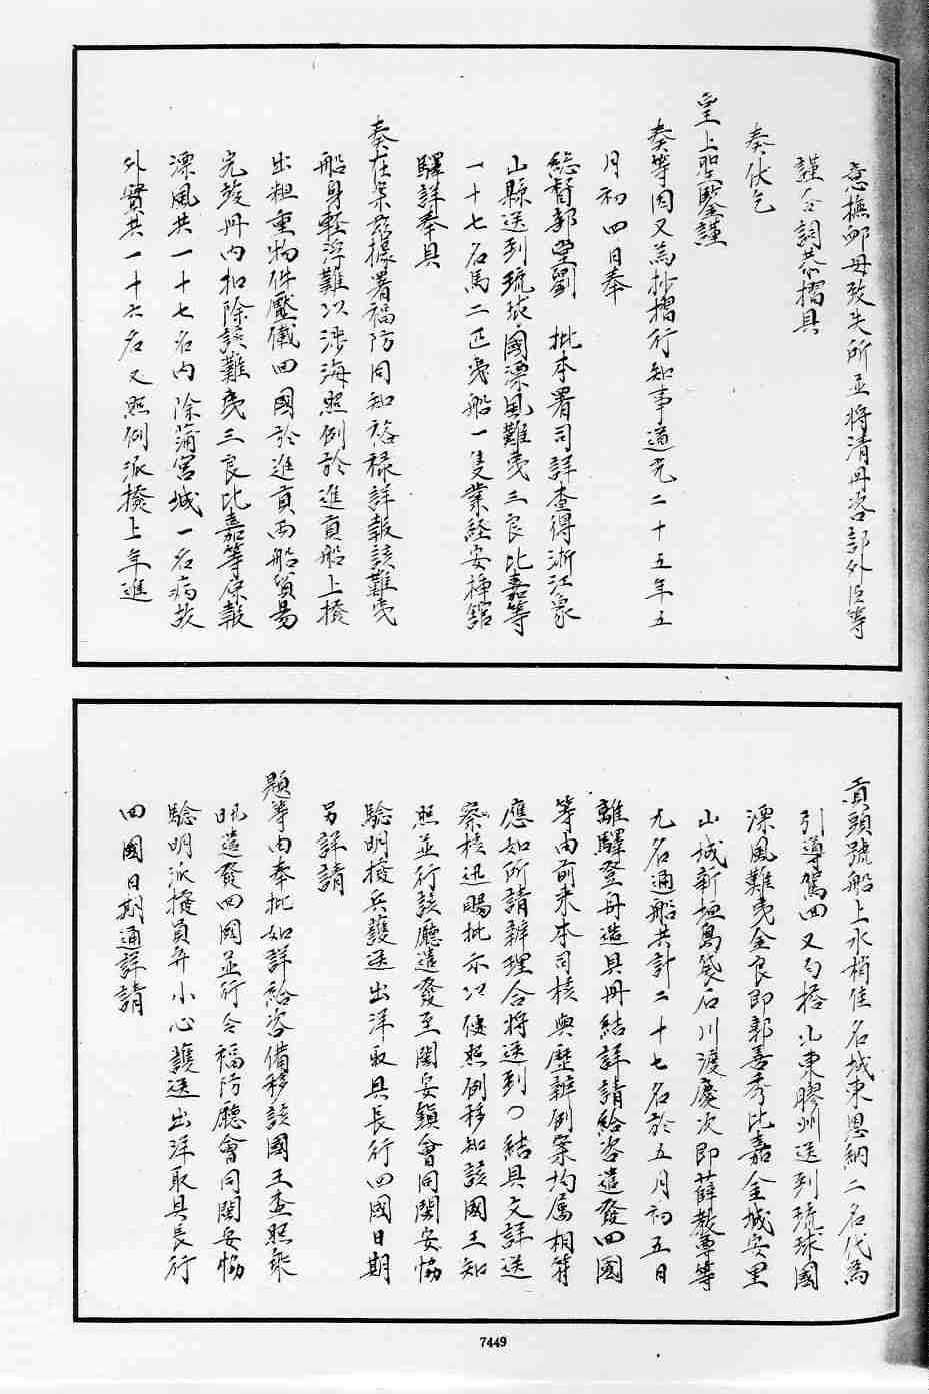 意撫卹毋致失所並將清冊咨部外臣等
謹合詞恭摺具
奏伏乞
皇上聖鑒謹
奏等因又為抄摺行知事道光二十五年五
月初四日奉
總督部堂劉　批本署司詳查得浙江象
山縣送到琉球國漂風難夷三良比嘉等
一十七名馬二匹夷船一隻業経安揷舘
驛詳奉具
奏在案茲據署福防同知裕祿詳報該難夷
船身輕浮難以涉海照例於進貢船上撥
出粗重物件壓儎回國於進貢両船貿易
完竣冊內扣除該難夷三良比嘉等保報
漂風共一十七名內除蒲宮城一名病故
外實共一十六名又照例派撥上年進
貢頭號船上水梢佳名城東恩納二名代為
引導駕回又勻搭山東膠州送到琉球國
漂風難夷金良即郭善秀比嘉金城安里
山城新垣島袋石川渡慶次即薛教尊等
九名通船共計二十七名於五月初五日
離驛登舟造具冊結詳請給咨遣發回國
等由前來本司核與歷辦例案均属相符
應如所請辦理合將送到〇結具文詳送
察核迅賜批示以便照例移知該國王知
照並行該廳遣發至閩安鎮會同閩安協
驗明撥兵護送出洋取具長行回國日期
另詳請
題等由奉批如詳給咨備移該國王查照飛
咀遣發回國並行令福防廳會同閩安協
驗明派撥員弁小心護送出洋取具長行
回國日期通詳請
7449